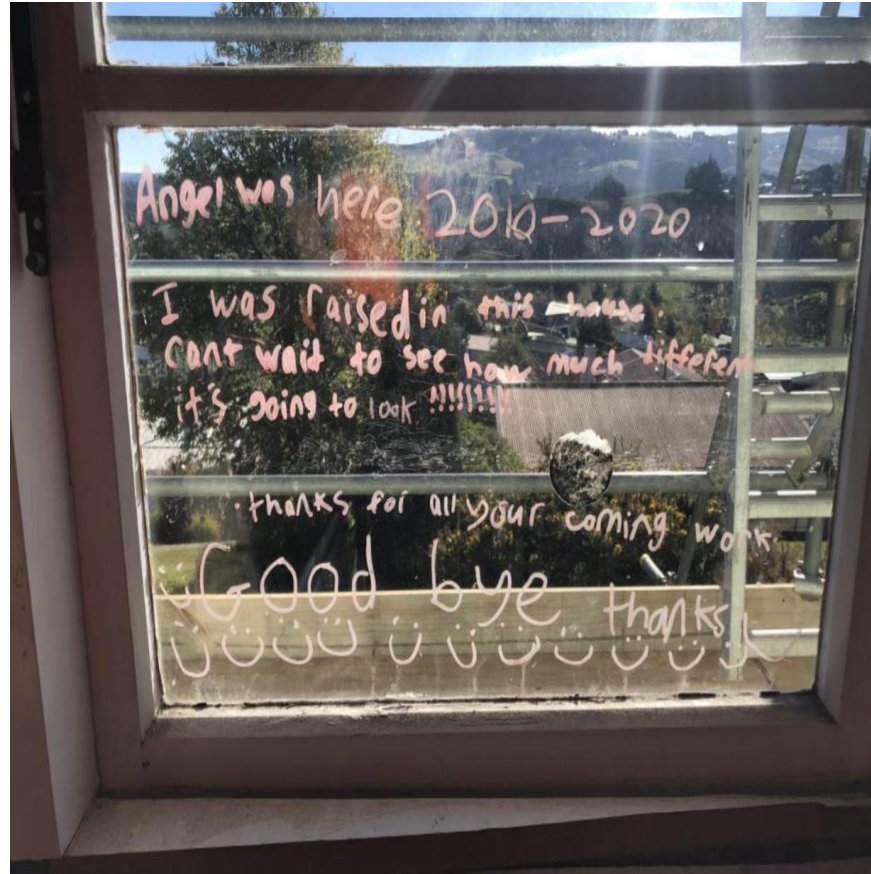 Angel was here 2010-2020
I was raised in this house.
cant wait to see how much different
it's going to look !!!!!!!!!
thanks for all your coming work.
Good bye
thanks